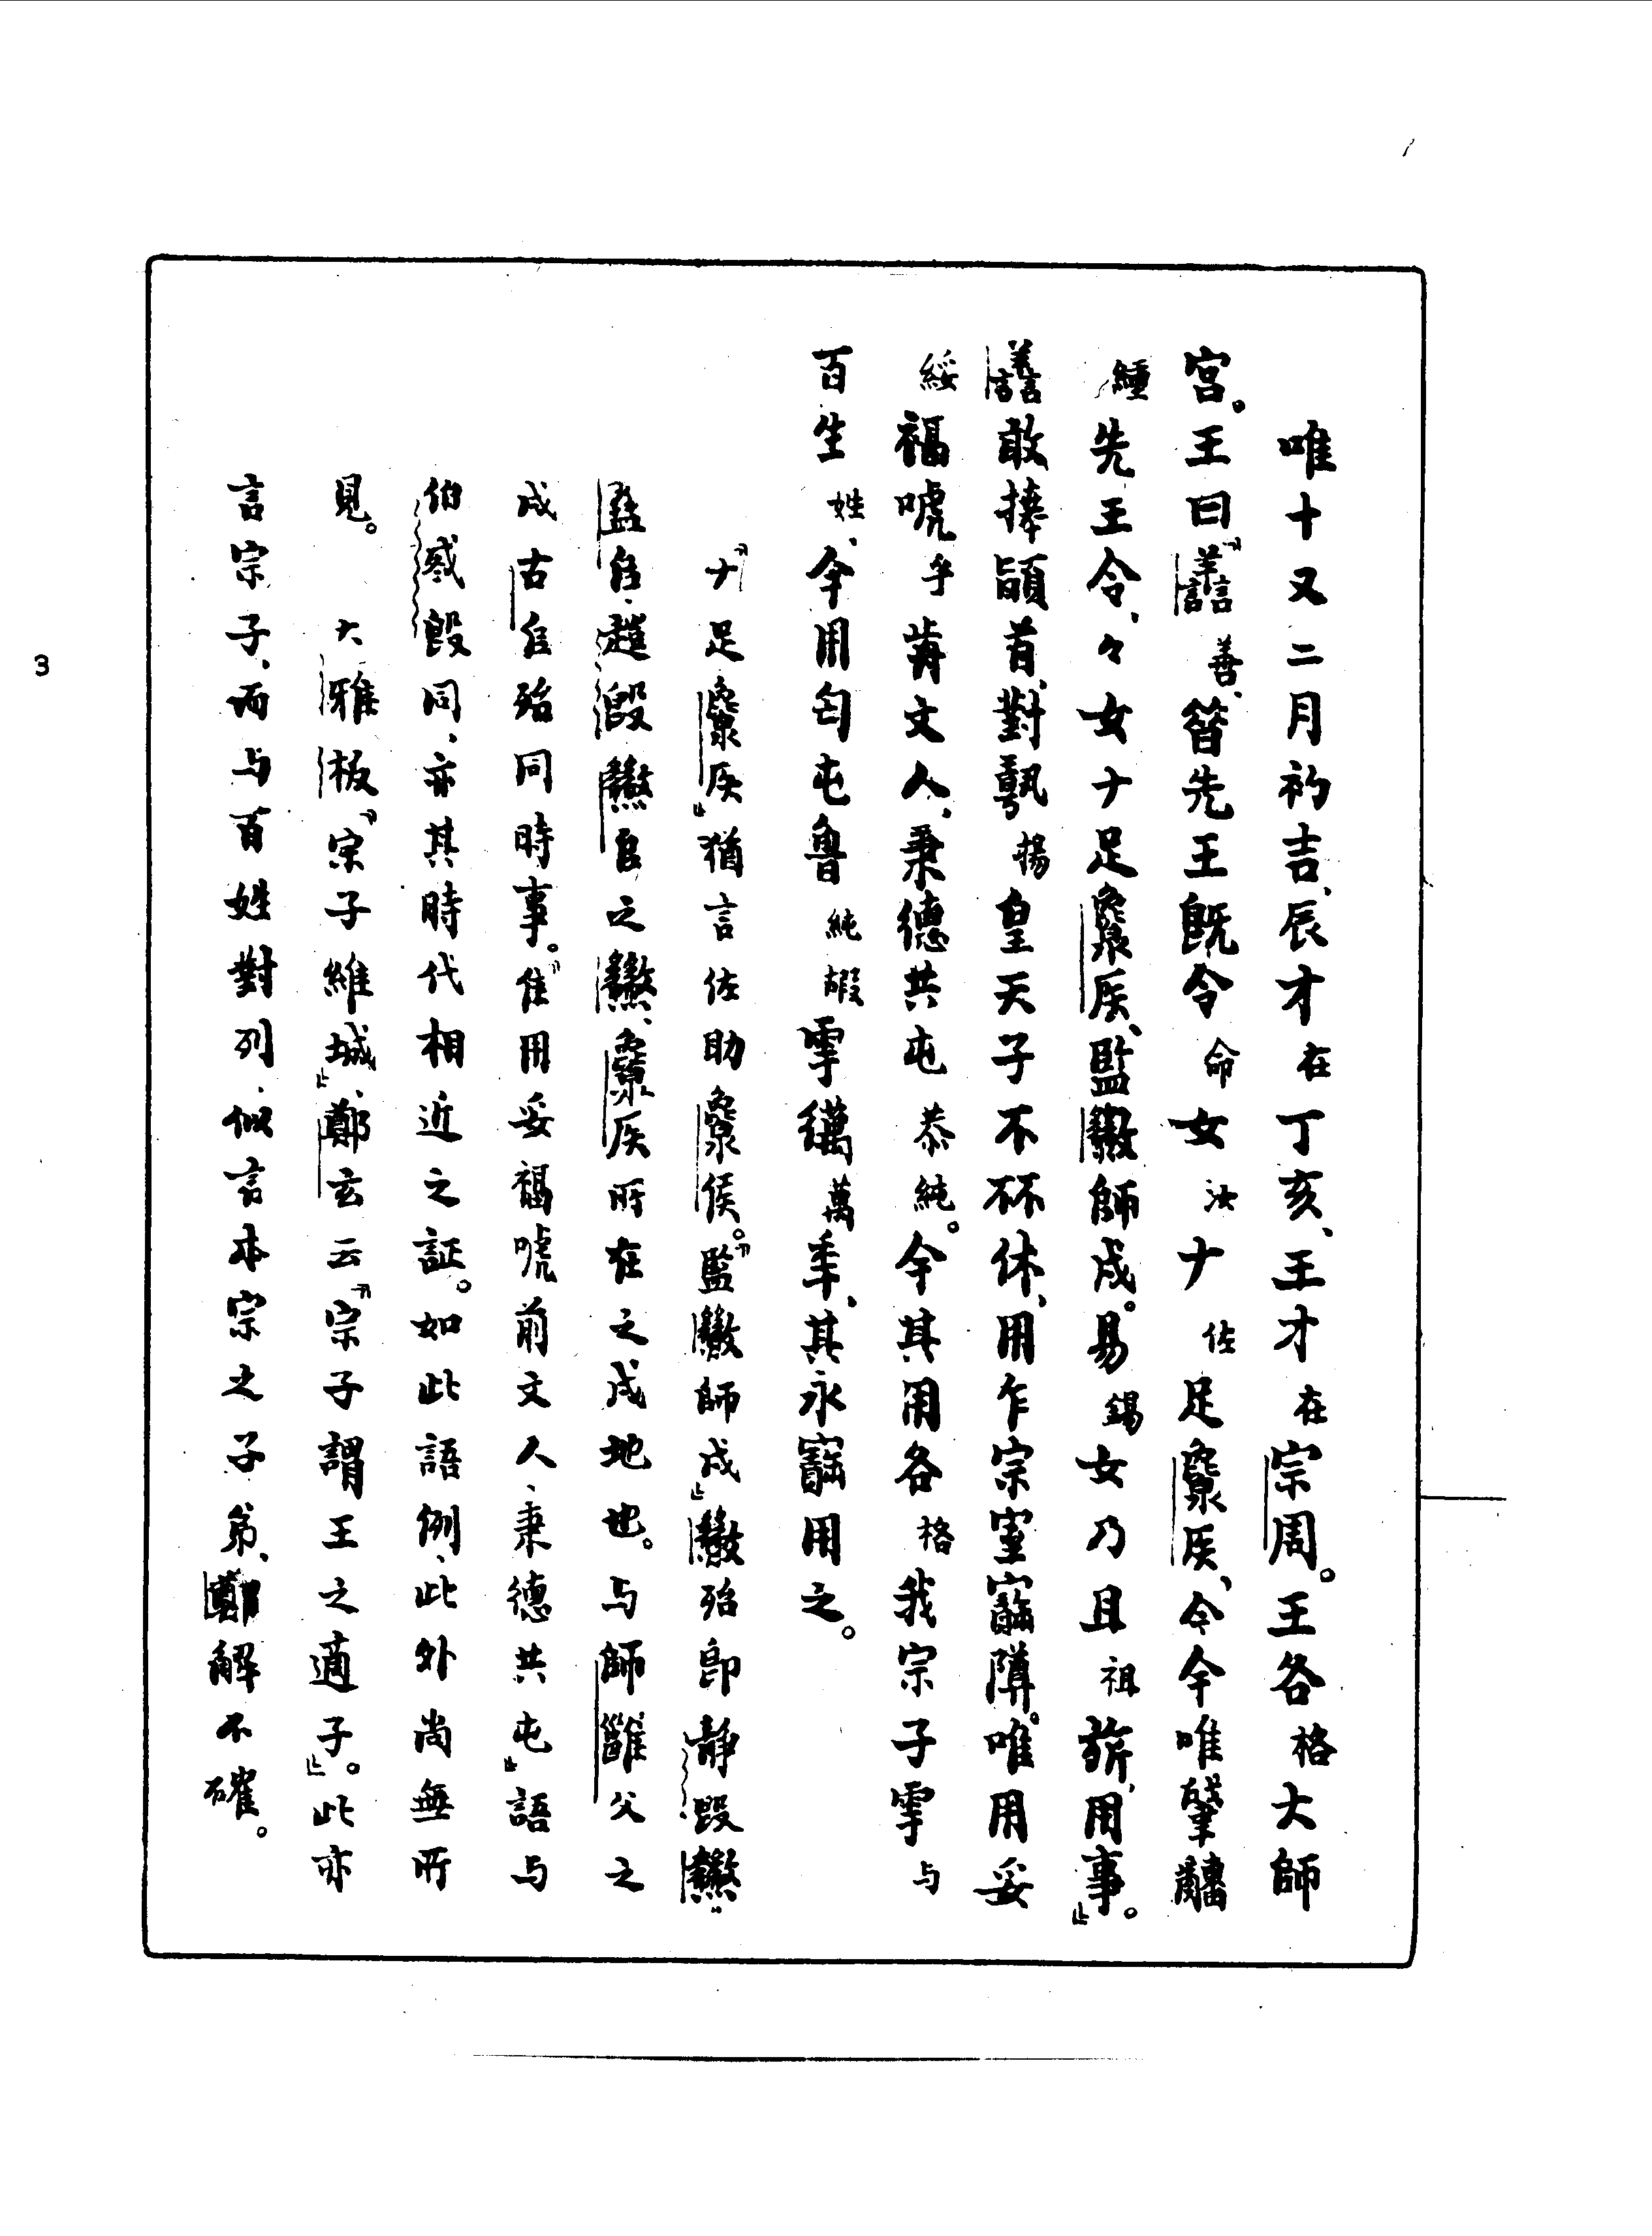 唯十又二月初吉、辰才在丁亥、王才在宗周。王各格大師
宮。王曰「譱善、昔先王既令命女汝𠂇佐足𩁹侯、令今唯肇𤕌
緟先王令、々女𠂇足侯、監師戍。易錫女乃且祖旂、用事。」
譱敢捧䭫首、對揚皇天子不㔻休、用乍宗室寶䵼。唯用妥
綏福唬乎歬文人、秉德共屯恭純。余其用各格我宗子雩与
百生姓、余用匄屯魯純嘏雩邁萬年、其永寶用之。
「𠂇足侯」猶言佐助侯。「監師戍」殆即靜𣪘
盠自、趞𣪘自之、侯所在之戍地也。与師雝父之
戍古自殆同時事。「隹用妥福唬前文人、秉德共屯」語与
伯㦰𣪘同、亦其時代相近之証。如此語例、此外尚無所
見。大雅板「宗子維城」、鄭玄云「宗子謂王之適子。」此亦
言宗子、而与百姓對列、似言本宗之子弟、鄭解不確。
3